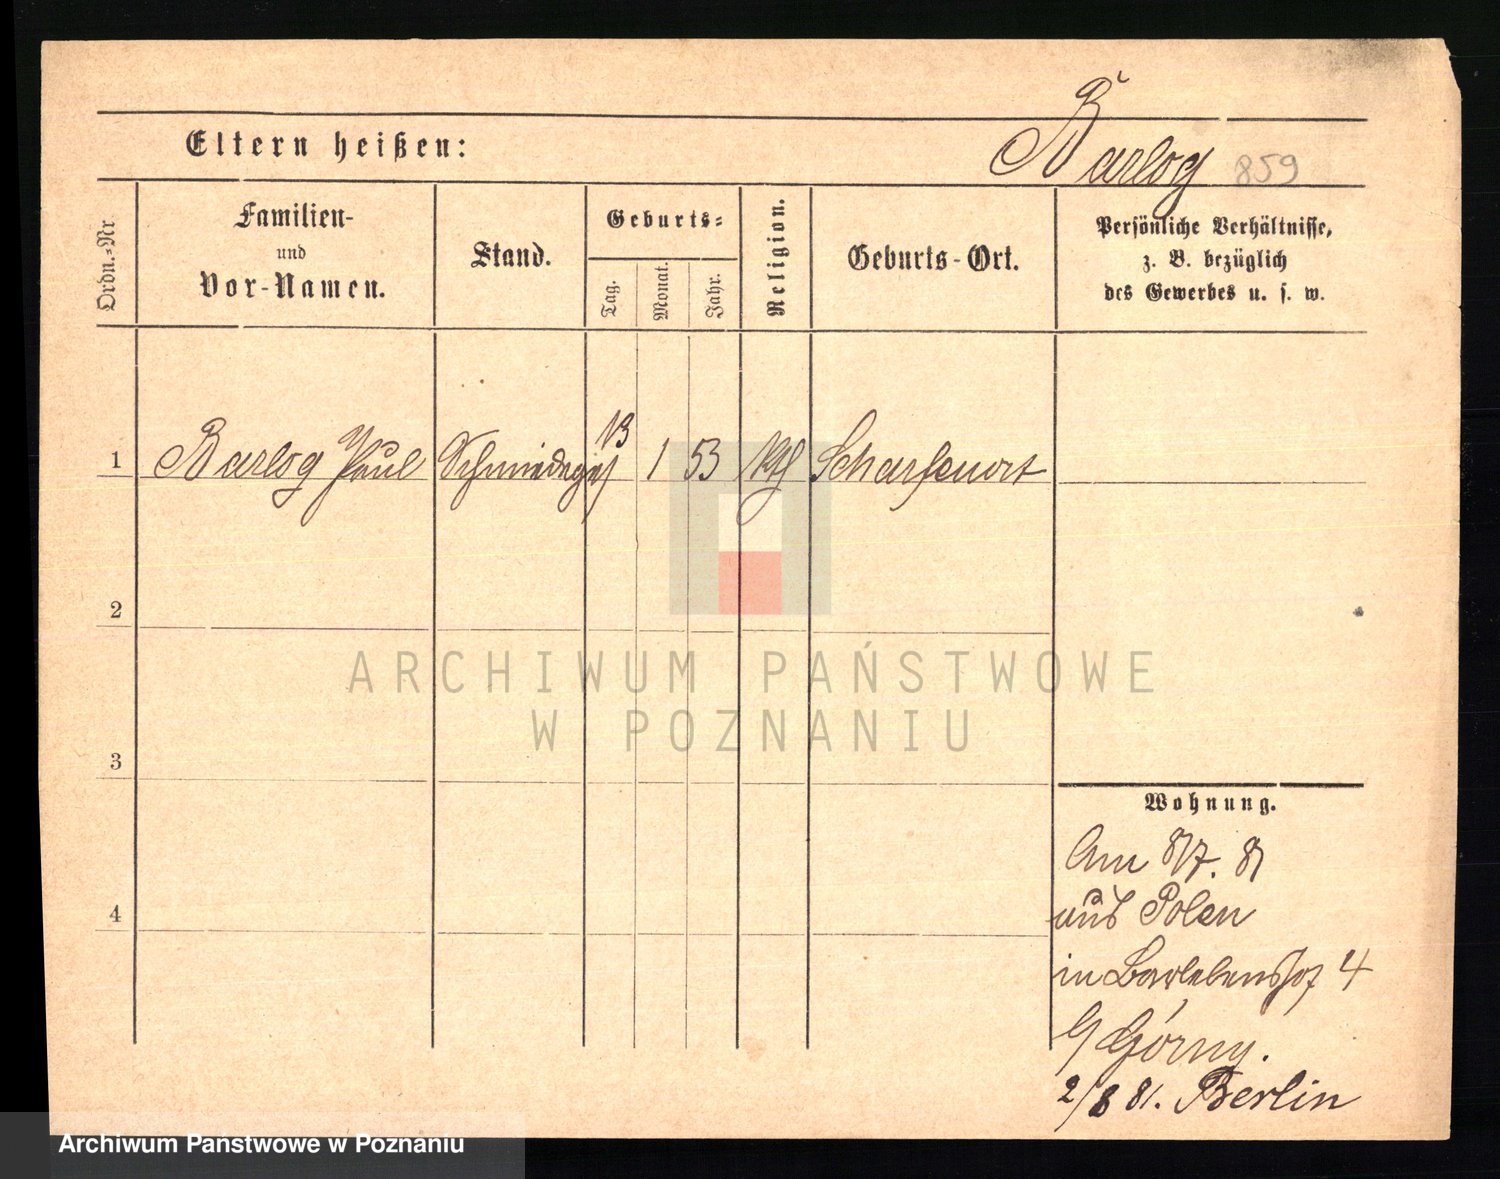 Eltern heißen:
Barlog 859
Ordn.=Nr
Familien-
und
Vor-Namen.
Stand.
Geburts=
Tag.
Monat.
Jahr.
Religion.
Geburts-Ort.
Persönliche Verhältnisse,
z. B. bezüglich
des Gewerbes u. s. w.
1 Barlog Paul Schmiedeges 13 1 53 kth Scharfenort
2
3
4
Wohnung.
Am 8/7. 81
aus Polen
in Barlebenshof 4
b/ Górny.
2/8 81. Berlin
ARCHIWUM PAŃSTWOWE
W POZNANIU
Archiwum Państwowe w Poznaniu